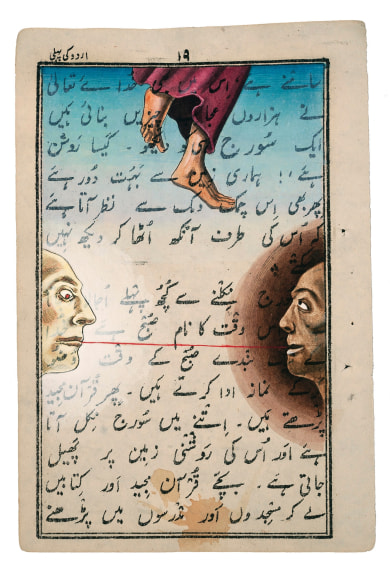 اردو کی پہلی
۱۹
سامنے ہے اس میں کی خدا ے تعالٰی
نے ہزاروں بنائی ہیں
ایک سورج کیسا روشن
ہے ؛؛ ہماری زمین سے بہت دور ہے
پھر بھی اس چمک دمک سے نظر آتا ہے
کہ اُس کی طرف آنکھ اُٹھا کر دیکھ نہیں
نکلنے سے کُچھ پہلے
وقت کا نام صُبح ہے
بندے صُبح کے وقت
نماز ادا کرتے ہیں ۔ پھر قُرآن مجید
پڑھتے ہیں ۔ اِتنے میں سُورج نِکل آتا
ہے اَور اُس کی روشنی زمین پر پھیل
جاتی ہے ۔ بچّے قُرآن مجید اَور کِتابیں
لے کر مسجدوں اَور مدرسوں میں پڑھنے